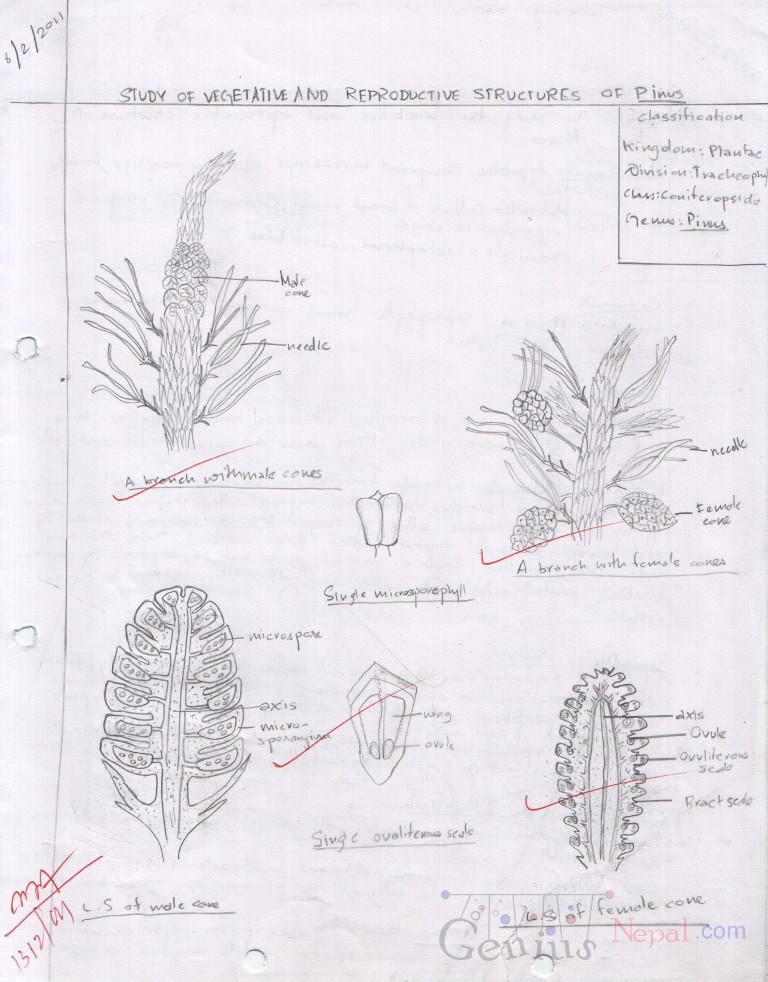 6/2/2011
STUDY OF VEGETATIVE AND REPRODUCTIVE STRUCTURES OF Pinus
Classification
Kingdom: Plantae
Division: Tracheophy
Class: Coniferopside
Genus: Pinus
Male
cone
needle
A branch with male cones
needle
Female
cone
A branch with female cones
Single microsporophyll
microspore
axis
micro-
sporangium
L.S of male cone
wing
ovule
Single ovuliferous scale
axis
Ovule
Ovuliferous
scale
Bract scale
L.S of female cone
Genius Nepal.com